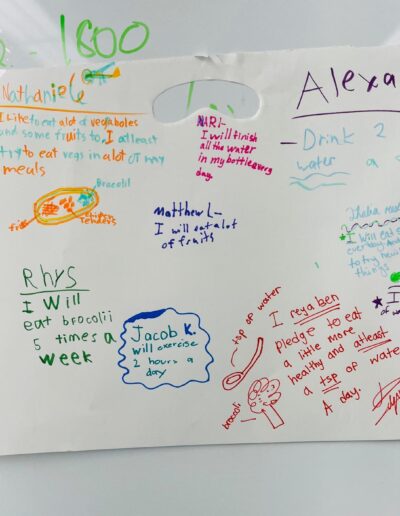 1800
Nathaniel
I like to eat alot of vegaboles
and some fruits to, I atleast
try to eat vegs in alot of my
meals
Brocolii
tenders
NARI-
I will finish
all the water
in my bottle every
day.
Alexa
- Drink 2
water a
Matthew L-
I will eat alot
of fruits
I will eat
everyday
to try new
things
I
of
Rhys
I will
eat brocolii
5 times a
week
Jacob K.
will exercise
2 hours a
day
tsp of water
brocoli
I reya ben
pledge to eat
a little more
healthy and atleast
a tsp of water
A day.